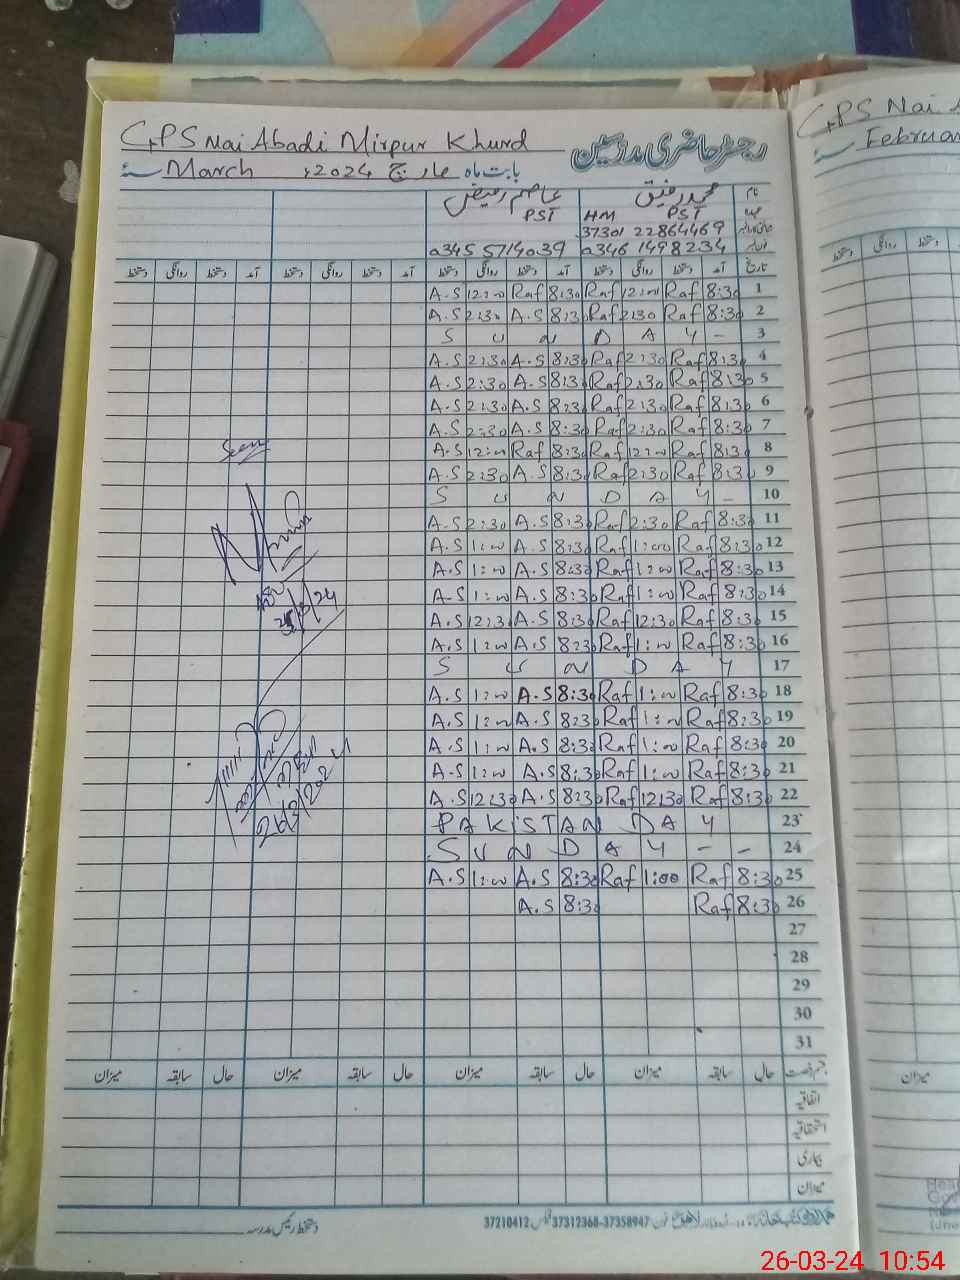 GPS Nai Abadi Mirpur Khurd
رجسٹر حاضری مدرسین
GPS Nai A
March مارچ 2024ء بابت ماہ
Februar
نام محمد رفیق عاصم رفیض
HM PST PST
37301 22864469
0346 1498234 0345 5714039
تاریخ آمد دستخط روانگی دستخط آمد دستخط روانگی دستخط آمد دستخط روانگی دستخط آمد دستخط روانگی دستخط
A.S 12:00 Raf 8:30 Raf 12:00 Raf 8:30 1
A.S 2:30 A.S 8:30 Raf 2:30 Raf 8:30 2
S U N D A Y - 3
A.S 2:30 A.S 8:30 Raf 2:30 Raf 8:30 4
A.S 2:30 A.S 8:30 Raf 2:30 Raf 8:30 5
A.S 2:30 A.S 8:30 Raf 2:30 Raf 8:30 6
A.S 2:30 A.S 8:30 Raf 2:30 Raf 8:30 7
A.S 12:00 Raf 8:30 Raf 12:00 Raf 8:30 8
A.S 2:30 A.S 8:30 Raf 2:30 Raf 8:30 9
S U N D A Y - 10
A.S 2:30 A.S 8:30 Raf 2:30 Raf 8:30 11
A.S 1:00 A.S 8:30 Raf 1:00 Raf 8:30 12
A.S 1:00 A.S 8:30 Raf 1:00 Raf 8:30 13
A.S 1:00 A.S 8:30 Raf 1:00 Raf 8:30 14
A.S 12:30 A.S 8:30 Raf 12:30 Raf 8:30 15
A.S 1:00 A.S 8:30 Raf 1:00 Raf 8:30 16
S U N D A Y 17
A.S 1:00 A.S 8:30 Raf 1:00 Raf 8:30 18
A.S 1:00 A.S 8:30 Raf 1:00 Raf 8:30 19
A.S 1:00 A.S 8:30 Raf 1:00 Raf 8:30 20
A.S 1:00 A.S 8:30 Raf 1:00 Raf 8:30 21
A.S 12:30 A.S 8:30 Raf 12:30 Raf 8:30 22
PAKISTAN DAY 23
S U N D A Y - - 24
A.S 1:00 A.S 8:30 Raf 1:00 Raf 8:30 25
A.S 8:30 Raf 8:30 26
27
28
29
30
31
Seen
26/3/2024
حال سابقہ میزان حال سابقہ میزان حال سابقہ میزان حال سابقہ میزان
اتفاقیہ
استحقاقیہ
بیماری
میزان
دستخط رئیس مدرسہ
37210412 37312368-37358947
26-03-24 10:54